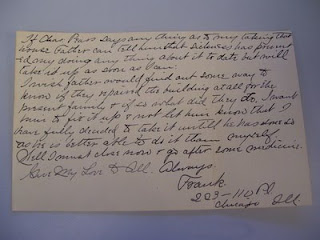 If Chas. Bross says any thing as to my taking that
house Father can tell him that sickness has prevent
ed my doing any thing about it to date but will
take it up as soon as I can.
I wish father would find out some way to
know if they repaired the building at all for the
present family & if so what did they do, I want
him to fix it up & not let him know that I
have fully decided to take it untill he has done so
as he is better able to do it than myself.
Well I must close now & go after some medicine.
Give My Love to All. Always.
Frank
223-110 Pl
Chicago Ill.